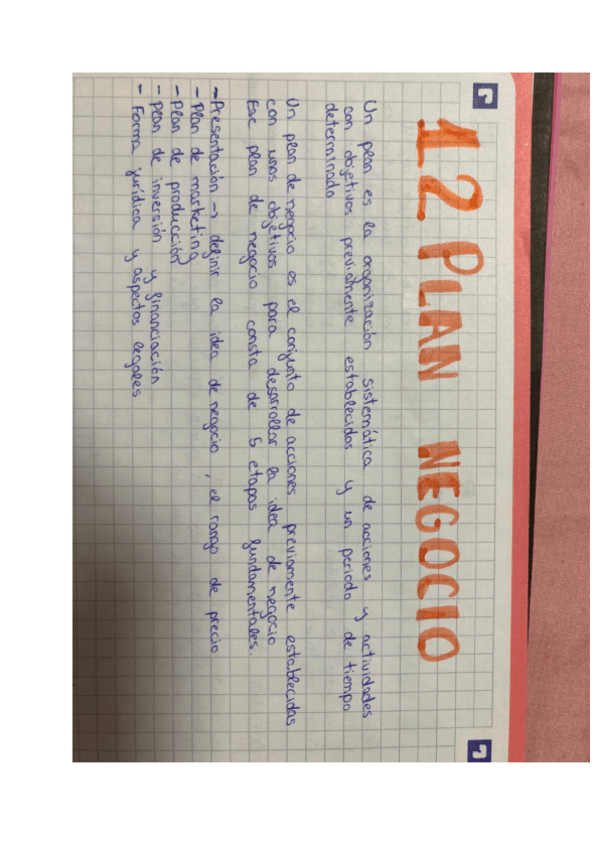 12 PLAN NEGOCIO
Un plan es la organización sistemática de acciones y actividades
con objetivos previamente establecidos y un periodo de tiempo
determinado
Un plan de negocio es el conjunto de acciones previamente establecidas
con unos objetivos para desarrollar la idea de negocio
Ese plan de negocio consta de 5 etapas fundamentales.
-Presentación → definir la idea de negocio, el rango de precio
- Plan de marketing
- Plan de producción
- Plan de inversión y financiación
- Forma jurídica y aspectos legales